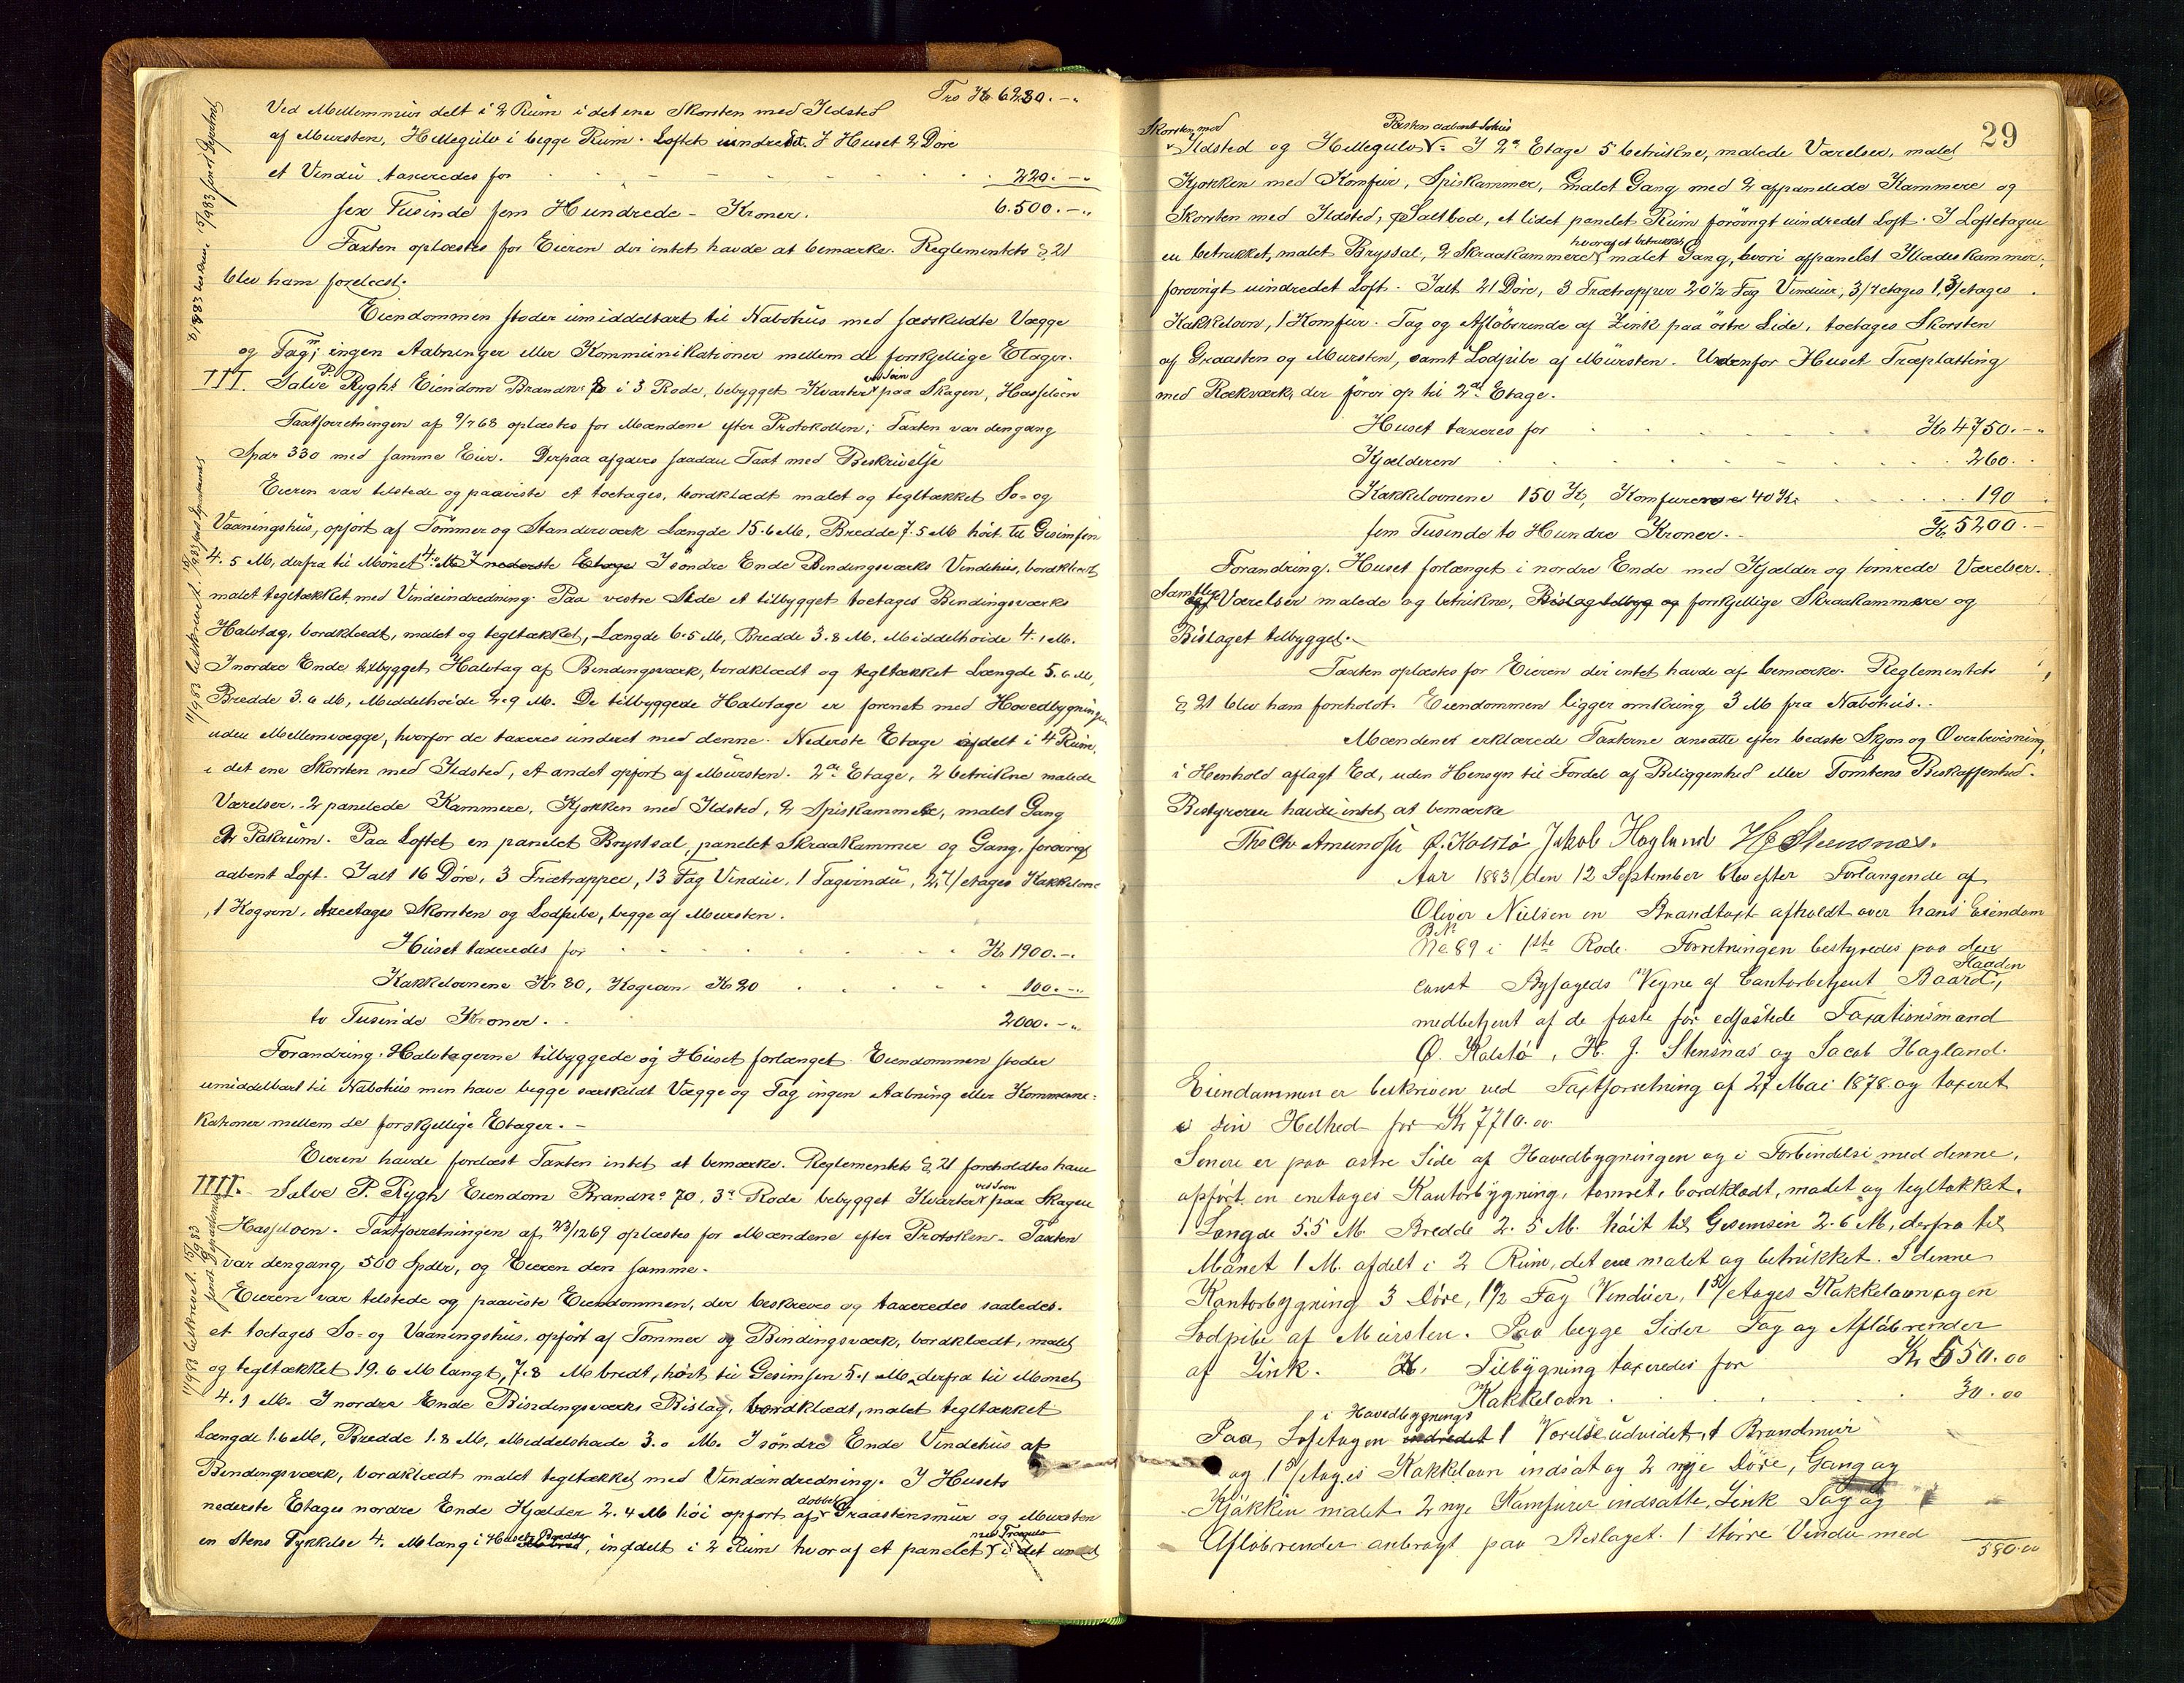 Trs Kr. 6280.-"
Ved Mellemmur delt i 2 Rum i det ene Skorsten med Ildsted
af Mursten, Hellegulv i begge Rum. Loftet uindredet. I Huset 2 Døre
et Vindu taxeredes for 220.-"
sex Tusinde fem Hundrede - Kroner. 6.500.-"
Taxten oplæstes for Eieren der intet havde at bemærke. Reglementets § 21
blev ham forelæst.
Eiendommen støder umiddelbart til Nabohus med særskildte Vægge
og Tag; ingen Aabninger eller Kommunikationer mellem de forskjellige Etager.
III. Salve P. Ryghs Eiendom Brandn: i 3 Rode, bebygget Kvarter ved Søen paa Skagen, Hasseløen
Taxtforretningen af 9/7 68 oplæstes for Mændene efter Protokollen; Taxten var dengang
Spdr 330 med samme Eier. Derpaa afgaves saadan Taxt med Beskrivelse
Eieren var tilstede og paaviste et toetages, bordklædt malet og tegltækket Sø- og
Vaaningshus, opført af Tømmer og Standerværk Længde 15.6 M, Bredde 7.5 M høit til Gesimsen
4.5 M, derfra til Mønet 4. M I nederste Etage I søndre Ende Bindingsværks Vindehus, bordklædt
malet tegltækket, med Vindeindredning. Paa vestre Side et tilbygget toetages Bindingsværks
Halvtag, bordklædt, malet og tegltækket, Længde 6.5 M, Bredde 3.8 M. Middelhøide 4.1 M.
I nordre Ende tilbygget Halvtag af Bindingsværk, bordklædt og tegltækket Længde 5.6 M,
Bredde 3.6 M, Middelhøide 2.9 M. De tilbyggede Halvtage er forenet med Hovedbygningen
uden Mellemvægge, hvorfor de taxeres underet med denne. Nederste Etage afdelt i 4 Rum,
i det ene Skorsten med Ildsted, et andet opført af Mursten. 2den Etage, 2 betrukne malede
Værelser, 2 panelede Kammere, Kjøkken med Ildsted, 2 Spiskammere, malet Gang
2 Pakrum. Paa Loftet en panelet Brystsal, panelet Skraakammer og Gang, forøvrigt
aabent Loft. Ialt 16 Døre, 3 Trætrapper, 13 Fag Vindue, 1 Tagvindu, 2,7/etages Kakkelovne
, 1 Kogovn, treetages Skorsten og Lodpibe, begge af Mursten.
Huset taxeredes for Kr 1900.-.
Kakkelovnene Kr. 80, Kogeovn Kr 20 100.-"
to Tusinde Kroner. 2000.-"
Forandring: Halvtagerne tilbyggede og Huset forlænget. Eiendommen støder
umiddelbart til Nabohus men have begge særskildt Vægge og Tag ingen Aabning eller Kommuni-
kationer mellem de forskjellige Etager.-
Eieren havde forelæst Taxten intet at bemærke. Reglementets § 21 foreholdtes ham
IIII. Salve P. Rygh Eiendom Brandno 70, 3de Rode bebygget Kvarter ved Søen paa Skagen
Hasseløen. Taxtforretningen af 23/12 69 oplæstes for Mændene efter Protokoen. Taxten
var dengang 500 Spdlr, og Eieren den samme.
Eieren var tilstede og paaviste Eiendommen, der beskreves og taxeredes saaledes.
et toetages Sø- og Vaaningshus, opført af Tømmer og Bindingsværk, bordklædt, malet
og tegltækket 19.6 M langt, 7.8 M bredt, høit til Gesimsen 5.1 M, derfra til Mønet
4.1 M. I nordre Ende Bindingsværks Bislag, bordklædt, malet tegltækket
Længde 1.6 M, Bredde 1.8 M, Middelshøide 3.0 M. I søndre Ende Vindehus af
Bindingsværk, bordklædt malet tegltækket med Vindeindredning. I Husets
nederste Etages nordre Ende Kjælder 2.4 M høi opført af dobbelt Graastensmur og Mursten
en Stens Tykkelse 4. M lang i Husets Bredde, inddelt i 2 Rum hvoraf et panelet med Trægulv i det andet
29
Skorsten med Ildsted og Hellegulv. Resten aabent Søhus I 2den Etage 5 betrukne, malede Værelser, malet
Kjøkken med Komfur, Spiskammer, malet Gang med 2 afpanelede Kammere og
Skorsten med Ildsted, Saltbod, et lidet panelet Rum forøvrigt uindredet Loft. I Loftetagen
en betrukket, malet Brystsal, 2 Skraakammere hvoraf et betrukket malet Gang, hvori afpanelet Klædeskammer,
forøvrigt uindredet Loft. Ialt 21 Døre, 3 Trætrapper 20 1/2 Fag Vinduer, 3/7 etages 1, 3/etages
Kakkelovn, 1 Komfur. Tag og Afløbsrende af Zink paa østre Side, toetages Skorsten
af Graasten og Mursten, samt Lodpibe af Mursten. Udenfor Huset Træplatting
med Rækværk, der fører op til 2den Etage.
Huset taxeres for Kr 4750.-"
Kjælderen 260.
Kakkelovnene 150 Kr, Komfurerne 40 Kr. 190
fem Tusinde to Hundre Kroner. Kr. 5200.-
Forandring. Huset forlænget i nordre Ende med Kjælder og tømrede Værelser.
Samtlige Værelser malede og betrukne, Bislag tilbyg og forskjellige Skraakammere og
Bislaget tilbygget.
Taxten oplæstes for Eieren der intet havde af bemærke. Reglementets
§ 21 blev ham foreholdt. Eiendommen ligger omkring 3 M fra Nabohus.
Mændenes erklærede Taxterne ansatte efter bedste Skjøn og Overbevisning,
i Henhold aflagt Ed, uden Hensyn til Fordel af Beliggenhed eller Tomtens Beskaffenhed.
Bestyreren havde intet at bemærke
Ths Chr Amundsen Ø. Kolstø Jakob Hagland HJ Steensnæs.
Aar 1883 den 12 September blev efter Forlangende af
Oliver Nielsen en Brandtaxt afholdt over hans Eiendom
B.N. No. 89 i 1ste Rode. Forretningen bestyredes paa den
const Byfogeds Vegne af Contorbetjent Baard Haaden,
medbetjent af de faste før edfæstede Taxationsmænd
Ø. Kolstø, H. J. Stensnæs og Jacob Hagland.
Eiendommen er beskreven ved Taxtforretning af 27 Mai 1878 og taxeret
i sin Helhed for Kr 7710.00
Senere er paa østre Side af Hovedbygningen og i Forbindelse med denne,
opført en enetages Kontorbygning, tømret, bordklædt, malet og tegltækket.
Længde 5.5 M. Bredde 2.5 M. høit til Gesimsen 2.6 M, derfra til
Mønet 1 M. afdelt i 2 Rum, det ene malet og betrukket. I denne
Kontorbygning 3 Døre, 1 1/2 Fag Vinduer, 1 5/etages Kakkelovn og en
Lodpibe af Mursten. Paa begge Sider Tag og Afløbsrender
af Zink. Tilbygning taxeredes for Kr 550.00
Kakkelovn 30.00
Paa Loftetagen i Hovedbygnings indredet 1 Værelse udvidet, 1 Brandmur
og 1 5/etages Kakkelovn indsat og 2 nye Døre, Gang og
Kjøkken malet 2 nye Komfurer indsatte, Zink Tag og
Afløbrender anbragt paa Bislaget. 1 større Vindu med
580.00